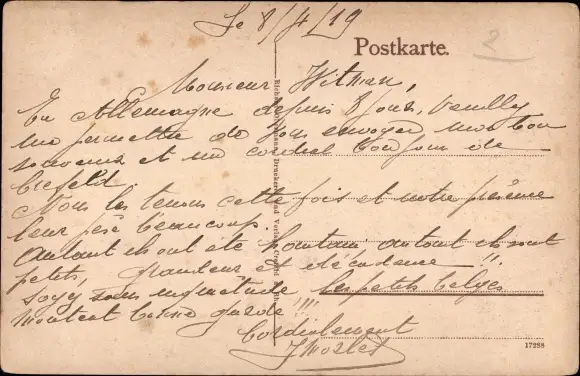 Le 8/4/19
Postkarte.
2
Monsieur Witman,
En Allemagne depuis 8 jours, veuillez
me permettre de vous envoyer mon bon
souvenir et un cordial bonjour de
Crefeld
Nous les tenons cette fois et notre présence
leur pèse beaucoup.
Autant ils ont été hautain autant ils sont
petits, grandeur et décadence !!
Soyez sans inquiétude les petits belges
montent bonne garde !!!!
Cordialement
17288